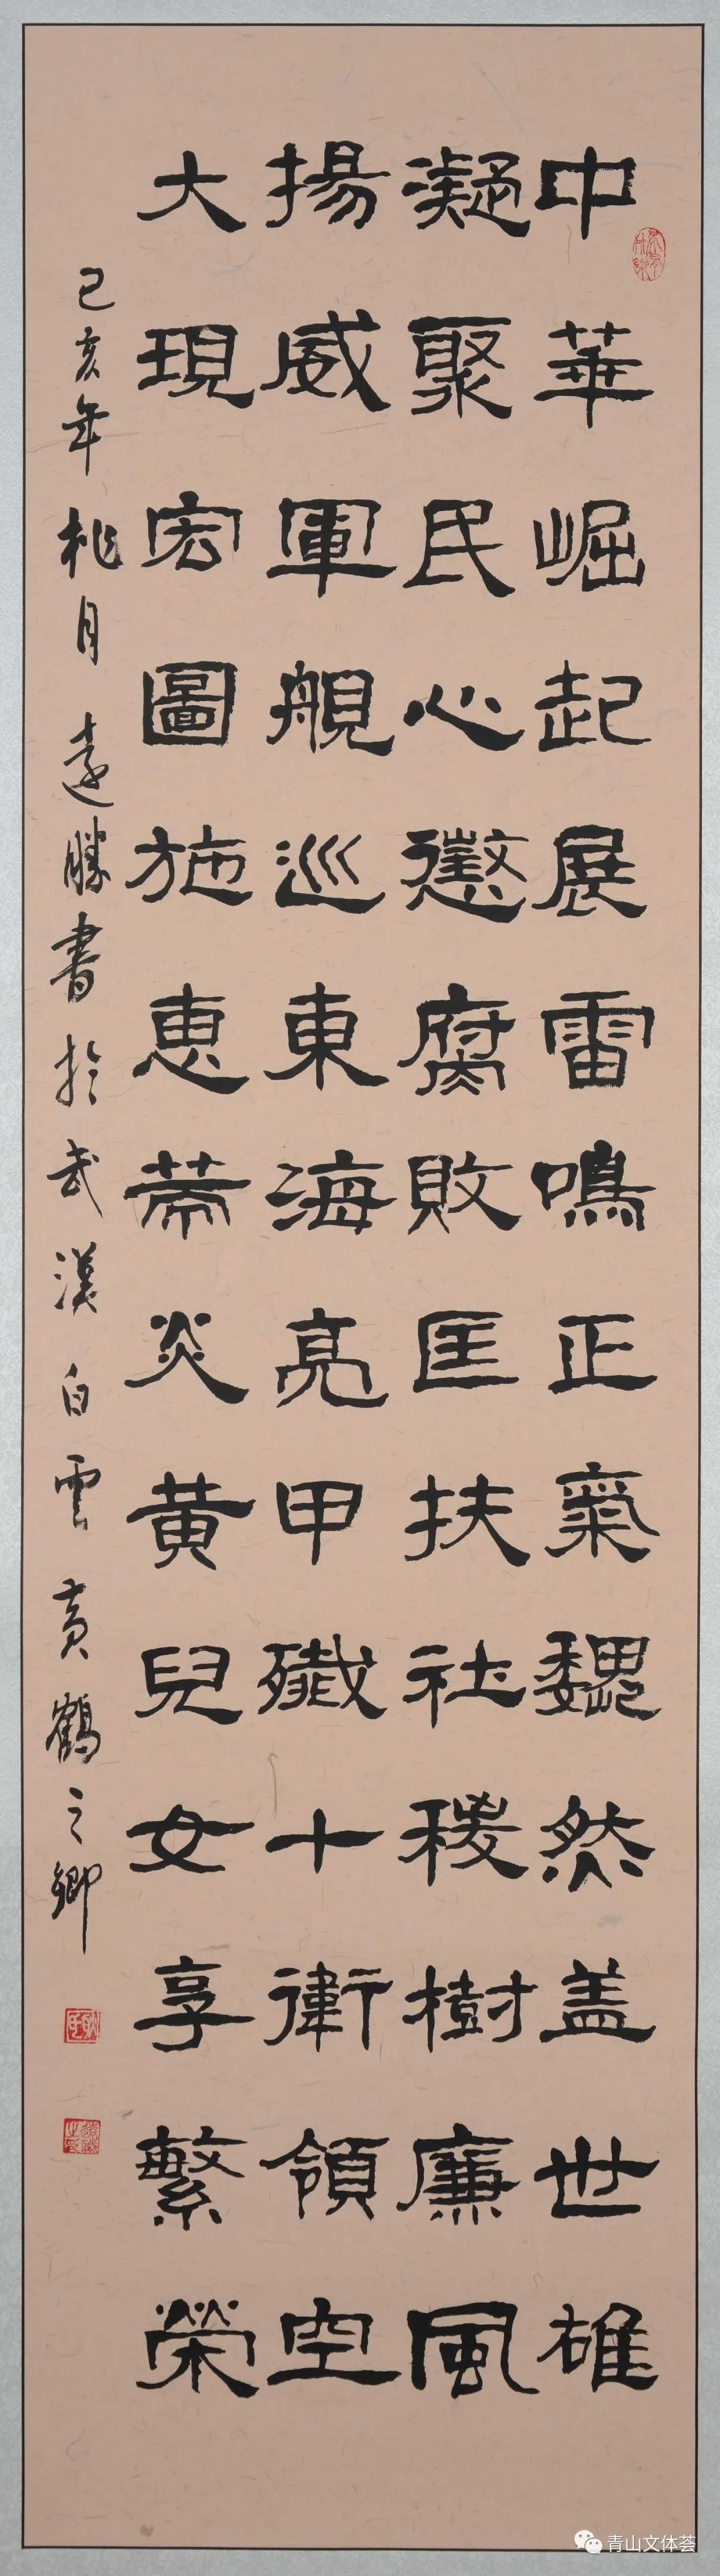 中華崛起展雷鳴正氣巍然盖世雄
凝聚民心懲腐敗匡扶社稷樹廉風
揚威軍艦巡東海亮甲殲十衛領空
大現宏圖施惠萧炎黄兒女享繁榮
己亥年桃月遠勝書於武漢白雲黄鶴之鄉
青山文体荟